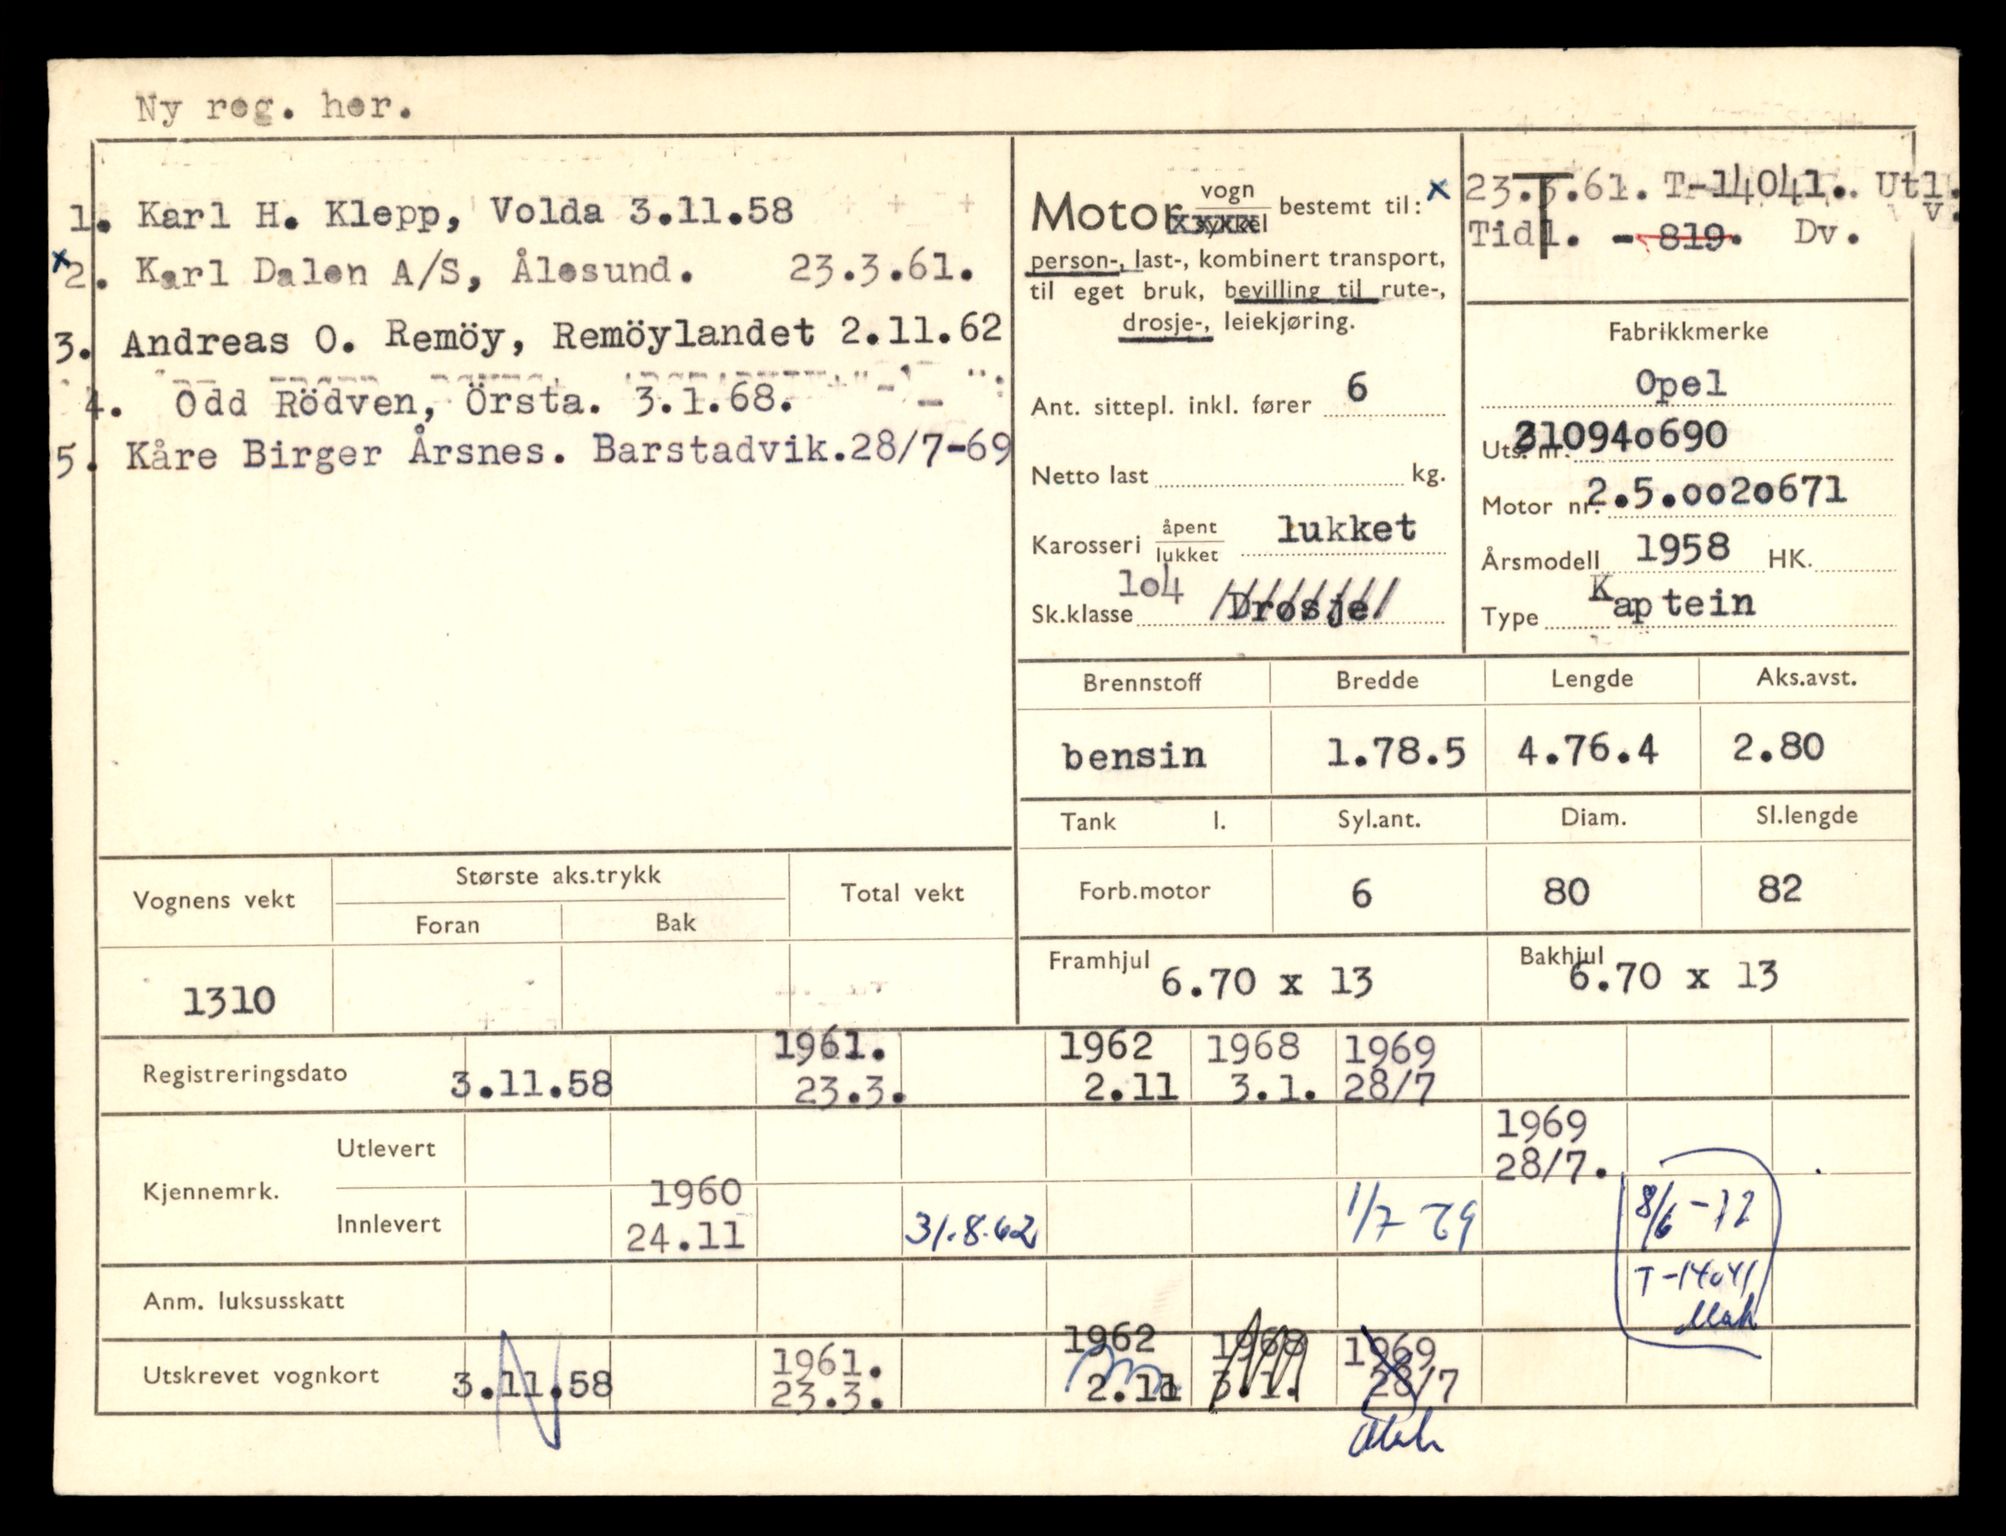 Ny reg. her.
1. Karl H. Klepp, Volda 3.11.58
x
2. Karl Dalen A/S, Ålesund. 23.3.61.
3. Andreas O. Remöy, Remöylandet 2.11.62
4. Odd Rödven, Örsta. 3.1.68.
5. Kåre Birger Årsnes. Barstadvik.28/7-69
Motor vogn sykkel bestemt til: x
person-, last-, kombinert transport,
til eget bruk, bevilling til rute-,
drosje-, leiekjøring.
Ant. sittepl. inkl. fører 6
Netto last kg.
Karosseri åpent lukket lukket
104
Sk.klasse Drosje
23.3.61. T-14041. Utl.
v.
T
Tidl. - 819. Dv.
Fabrikkmerke
Opel
Uts. nr. 310940690
Motor nr. 2.5.0020671
Årsmodell 1958 HK.
Type Kaptein
Brennstoff Bredde Lengde Aks.avst.
bensin 1.78.5 4.76.4 2.80
Tank l. Syl.ant. Diam. Sl.lengde
Forb.motor 6 80 82
Framhjul 6.70 x 13 Bakhjul 6.70 x 13
Vognens vekt Største aks.trykk Total vekt
Foran Bak
1310
1961. 1962 1968 1969
Registreringsdato 3.11.58 23.3. 2.11 3.1. 28/7
1969
Utlevert 28/7.
Kjennemrk.
1960
Innlevert 24.11 31.8.62 1/7 69 8/6-72
T-14041
Anm. luksusskatt
1961. 1962 1968 1969
Utskrevet vognkort 3.11.58 23.3. 2.11 3.1. 28/7